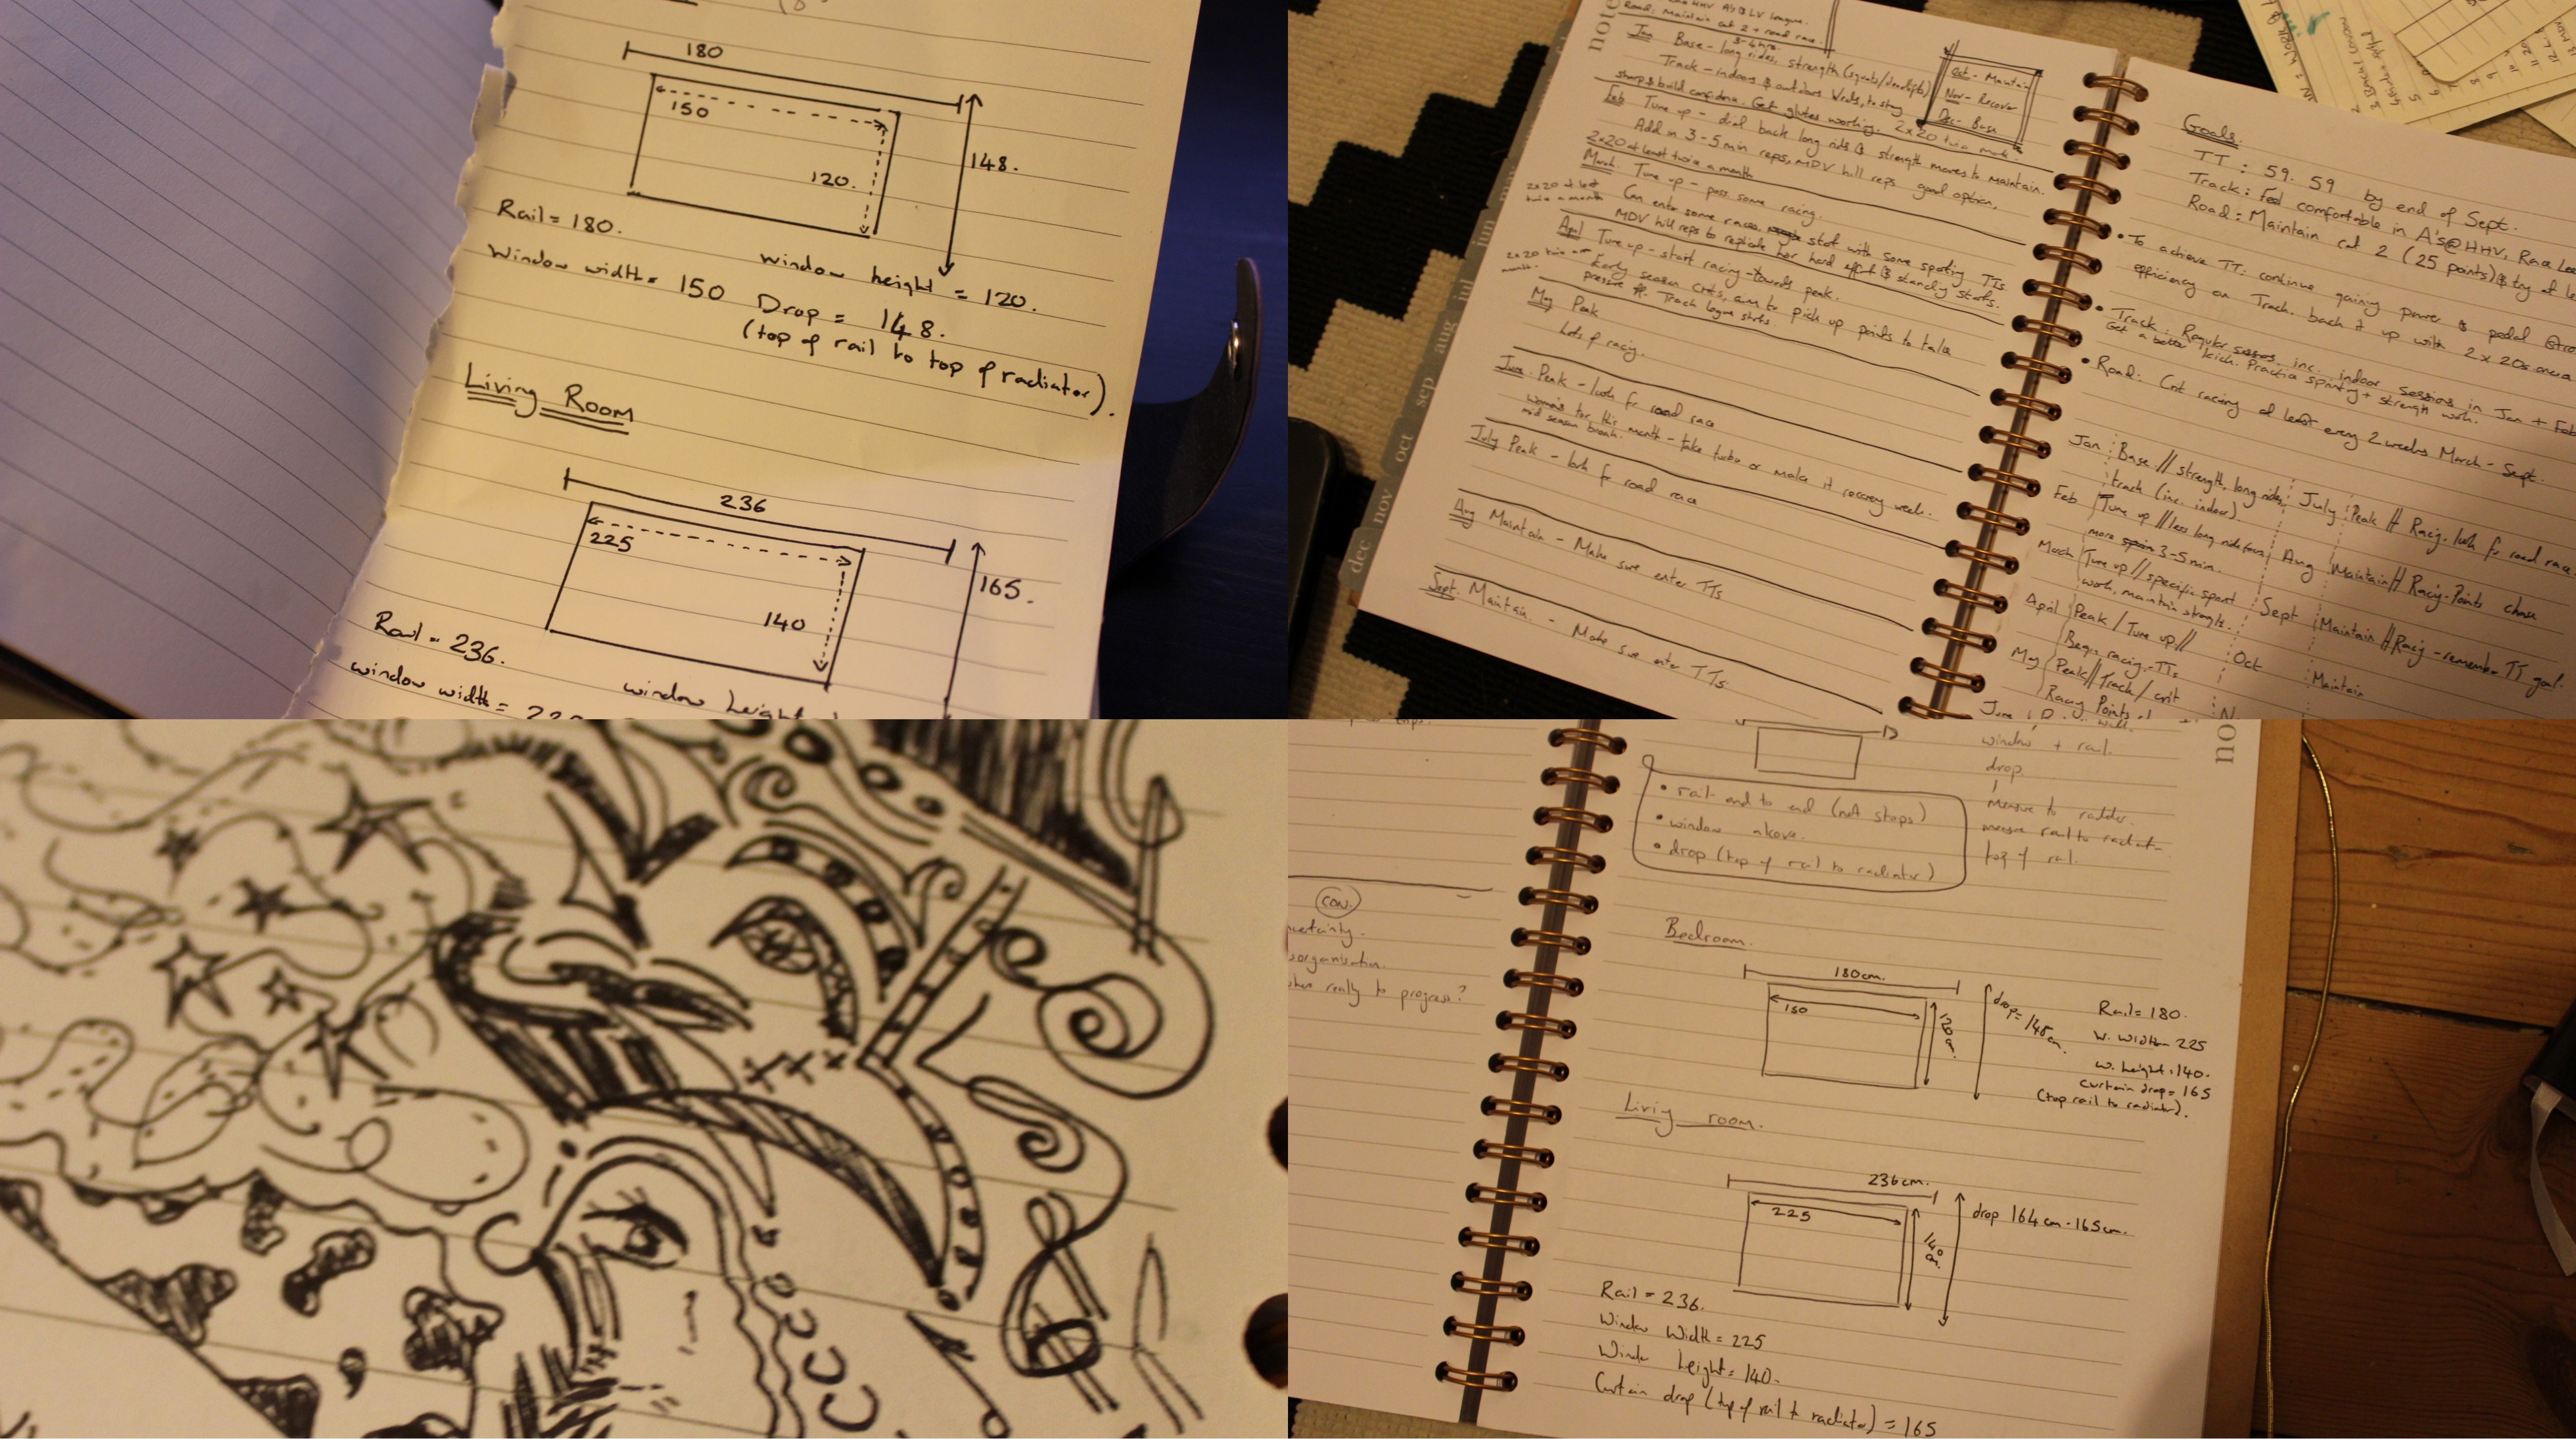 180
150
148.
120.
Rail = 180.
Window width = 150
window height = 120.
Drop = 148.
(top of rail to top of radiator).
Living Room
236
225
165.
140
Rail = 236.
window width =
window height
Road: Maintain cat 2 + road race
3-4 hrs.
Jan Base - long rides, strength (squats/deadlifts)
Track - indoors & outdoors Weds, to stay
sharp & build confidence. Get glutes working. 2x20 twice
Oct - Maintain
Nov - Recover
Dec - Base
Feb Tune up - dial back long rides & strength moves to maintain.
Add in 3-5 min reps, MDV hill reps good option.
2x20 at least twice a month
March Tune up - poss some racing.
2x20 at least
twice a month
Can enter some races start with some sporting TTs
MDV hill reps to replicate her hard effort & standing starts.
April Tune up - start racing - towards peak.
2x20 twice a
month.
Early season crits, aim to pick up points to take
pressure off. Track league starts
May Peak
Lots of racing.
June Peak - look fr road race
Women's tor this month - take turbo or make it recovery week.
mid season break.
July Peak - look fr road race
Aug Maintain - Make sure enter TTs
Sept. Maintain. - Make sure enter TTs
jun
jul
aug
sep
oct
nov
dec
Goals.
TT: 59.59 by end of Sept.
Track: Feel comfortable in A's@HHV, Race
Road: Maintain cat 2 (25 points) & try at
• To achieve TT: continue gaining power & pedal
efficiency on Track. back it up with 2x20s
• Track: Regular sessions inc. indoor sessions in Jan + Feb
Get a better kick. Practice sprinting + strength work.
• Road: Crit racing at least every 2 weeks March - Sept.
Jan Base // strength, long rides,
track (inc. indoor).
Feb Tune up // less long rides
more 3-5 min.
March Tune up // specific sport
work, maintain strength.
April Peak / Tune up //
Begin racing - TTs
May Peak // Track / crit
Racing Points
June
July Peak // Racing. look fr road race.
Aug Maintain // Racing - Points chase
Sept Maintain // Racing - remember TT goal.
Oct Maintain
window + rail.
drop
measure to radiator.
measure rail to
top of rail.
• rail end to end (not stops)
• window alcove.
• drop (top of rail to radiator)
con.
really to progress?
Bedroom.
180cm.
150
120cm.
drop = 148cm.
Rail = 180.
W. width = 225
W. height = 140.
curtain drop = 165
(top rail to radiator).
Living room.
236cm.
225
140 cm.
drop 164cm - 165cm.
Rail = 236.
Window Width = 225
Window height = 140.
Curtain drop (top of rail to radiator) = 165